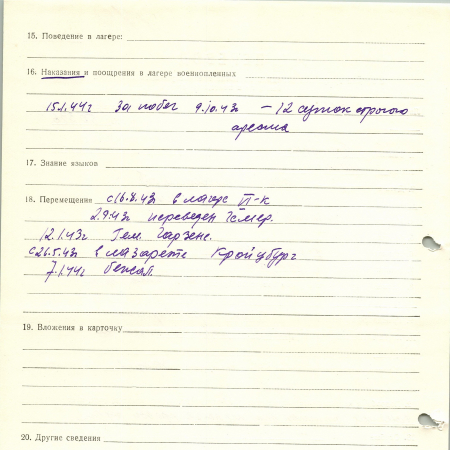 15. Поведение в лагере:
16. Наказания и поощрения в лагере военнопленных
15.1.44г За побег 9.10.43г – 12 суток строгого
ареста
17. Знание языков
18. Перемещения с 16.8.43г в лагере VI-к
2.9.43г переведен
12.1.43г Гем.
с 26.5.43г в лазарете Кройцбург
7.1.44г бежал
19. Вложения в карточку
20. Другие сведения